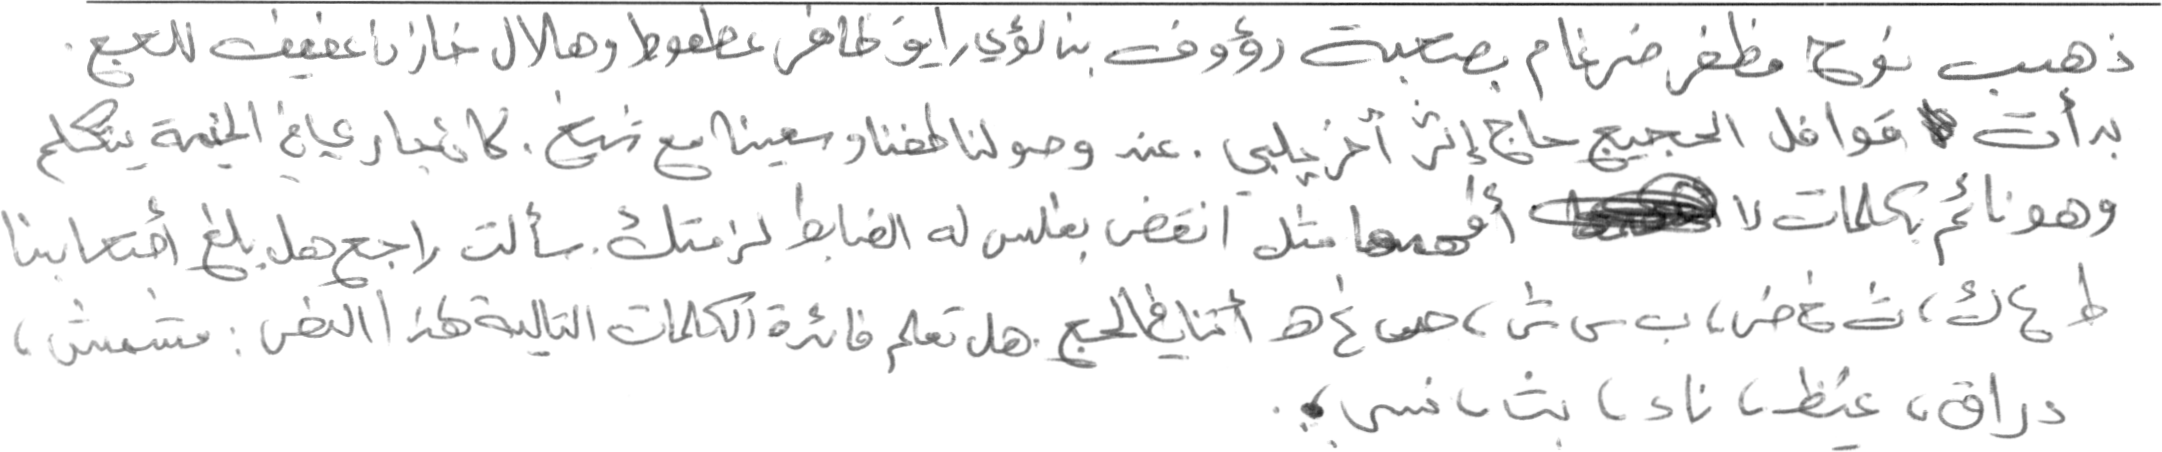 ذهب نوح مظفر ضرغام بصحبة رؤوف بن لؤي رايق ظافر عطعوط وهلال خازن عفيف للحج.
بدأت قوافل الحجيج حاج إثر آخر يلبي. عند وصولنا طفنا وسعينا مع شيخ. كان عبار يحيا في الخيمة يتكلم
وهو نائم بكلمات لا أفهمها مثل انقض بغلس له الضابط لزمتك. سألت راجح هل بلغ أصحابنا
ط ع ك، ث خ ض، ب س ش، ص غ ه أثنا في الحج. هل تعلم فائدة الكلمات التالية لهذا النص: مشمش،
دراق، غيظ، ناء، بث، نسي،.